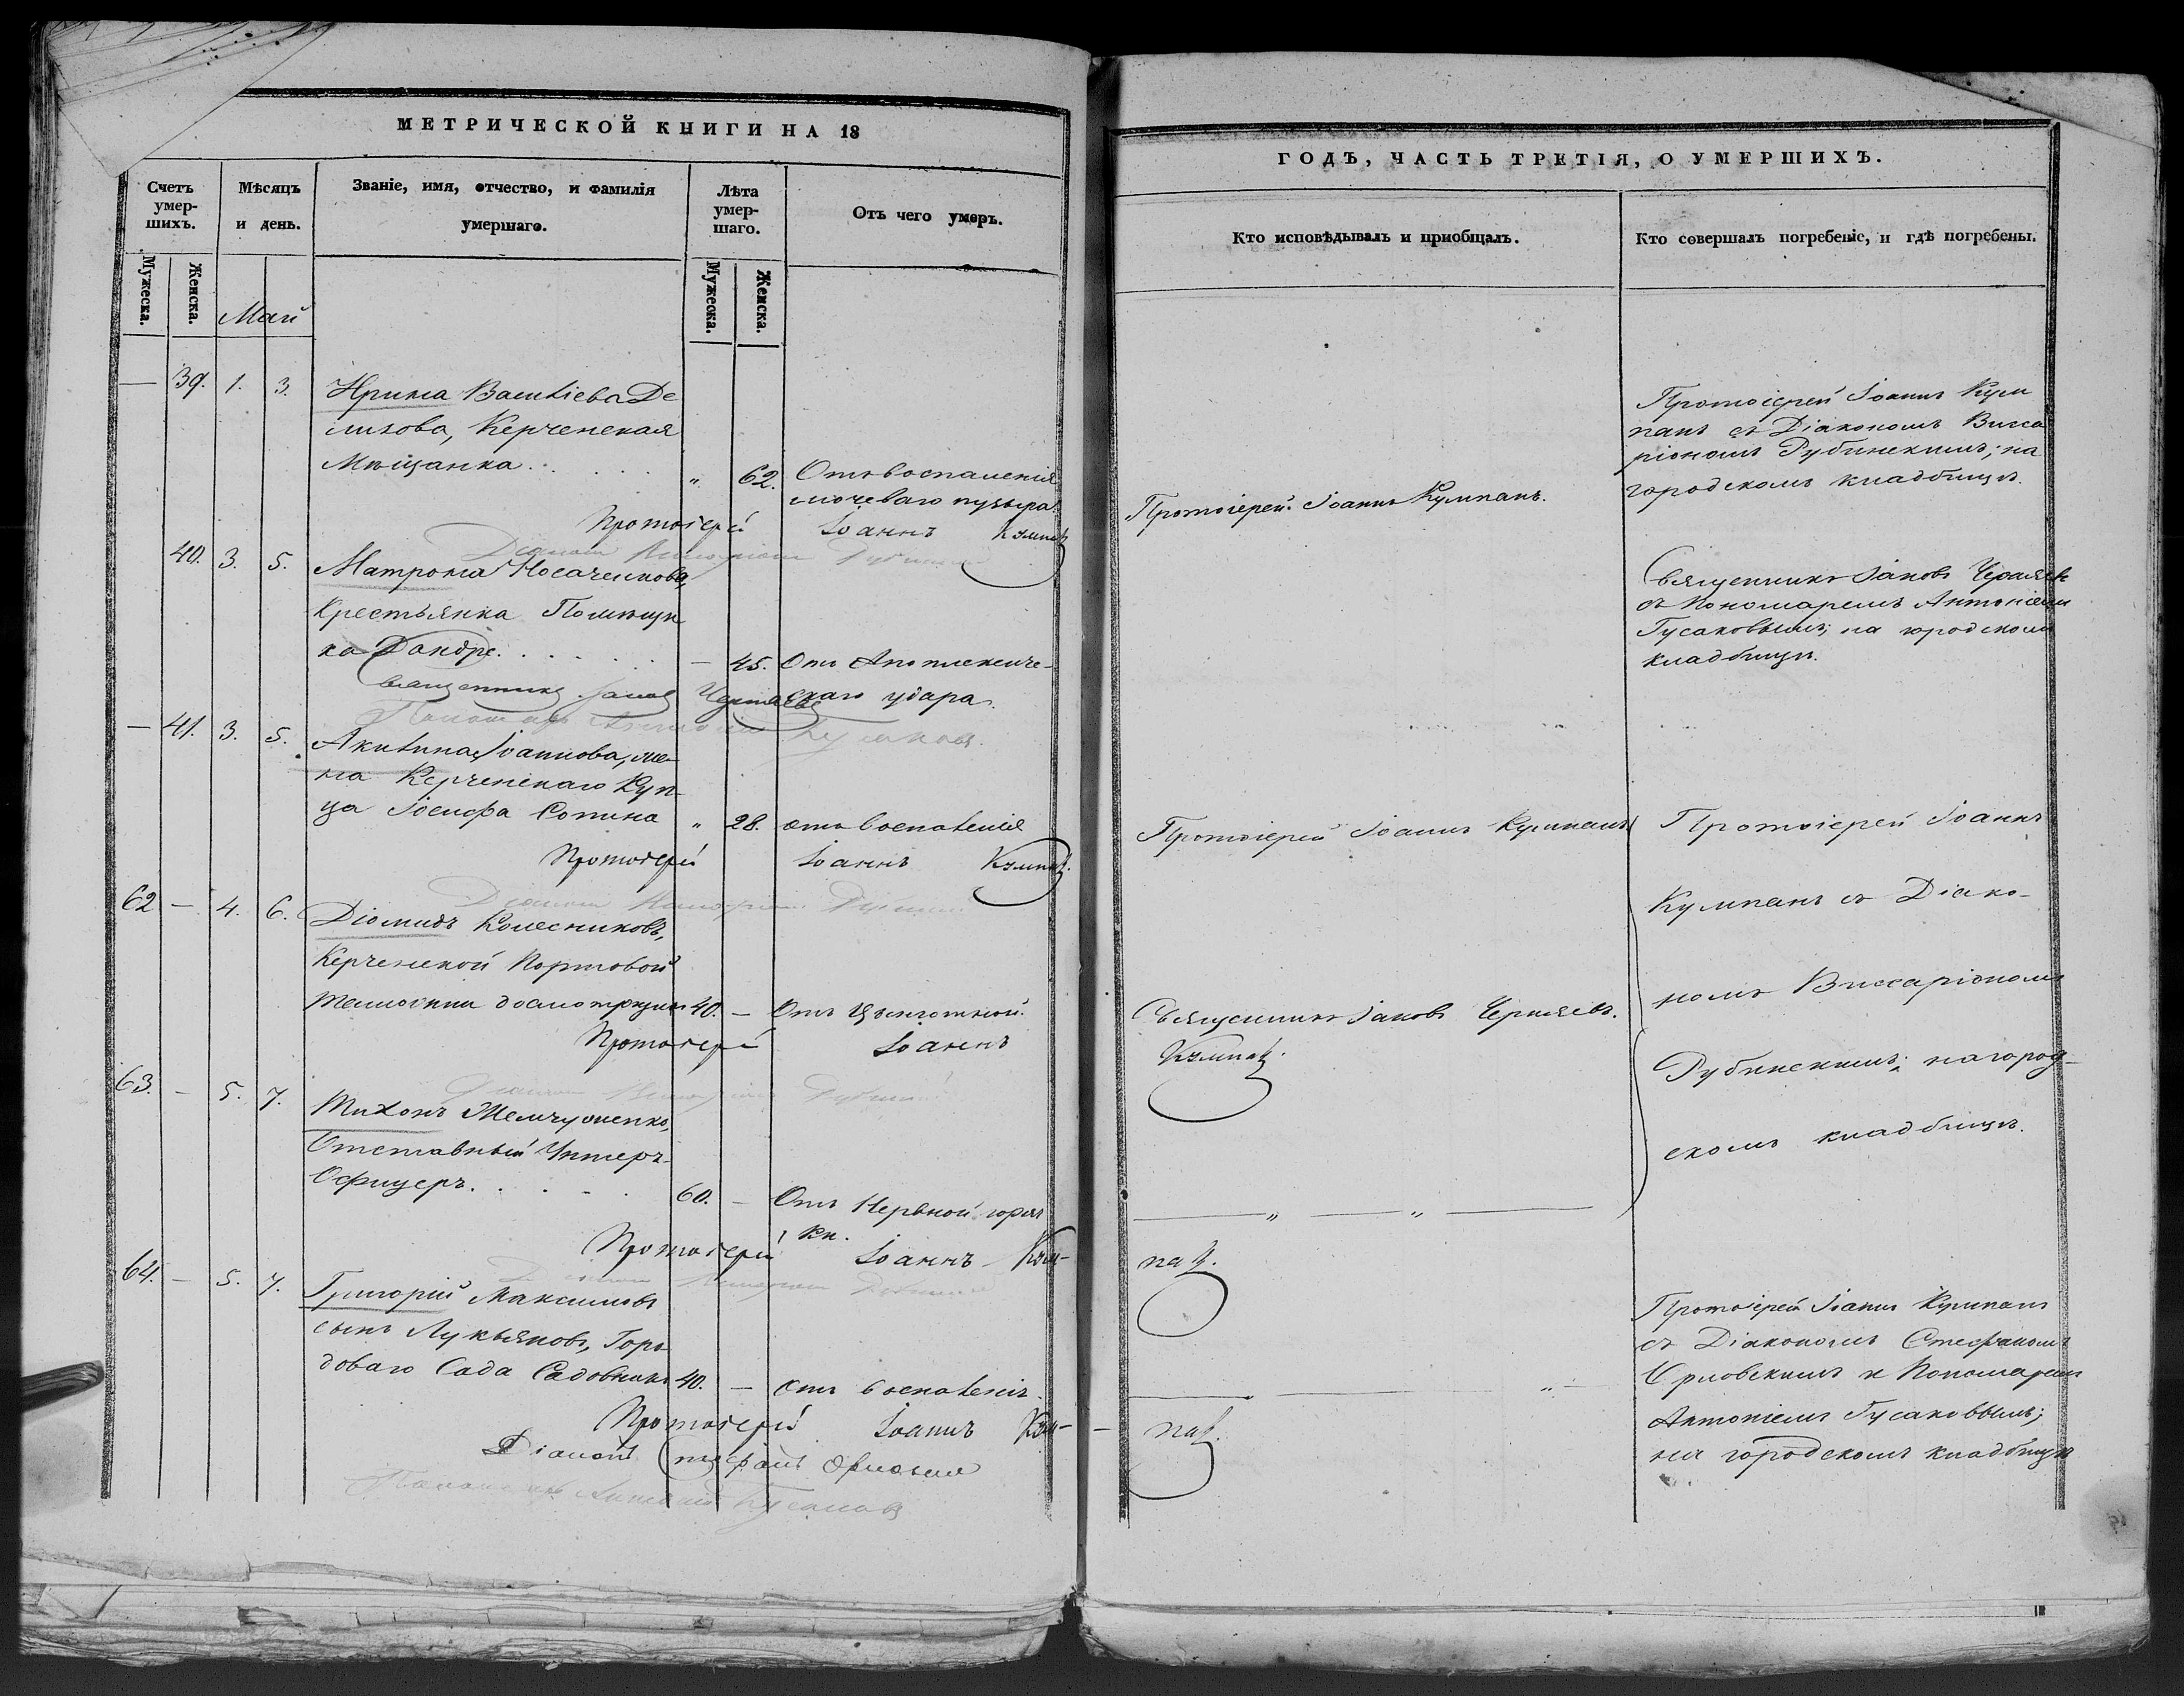 МЕТРИЧЕСКОЙ КНИГИ НА 18
Счетъ умер-шихъ.
Мѣсяцъ и день.
Званіе, имя, отчество, и фамилія умершаго.
Лѣта умер-шаго.
Отъ чего умеръ.
Мужеска.
Женска.
Май
Мужеска.
Женска.
— 39. 1. 3. Ирина Василіева Де
лихова, Керченская
Мѣщанка . . . . . „ 62. Отъ воспаленія
мочеваго пузыря.
Протоіерей Іоаннъ Кумпанъ
40. 3. 5. Матрона Носаченкова,
Крестьянка Помѣщи
ка Дандре. . . . . — 45. Отъ Апоплексиче-
скаго удара.
Священникъ Іаковъ Черняевъ
Пономарь Антоній Гусаковъ.
— 41. 3. 5. Акилина Іоаннова, же-
на Керченскаго Куп-
ца Іосифа Сопина „ 28. отъ воспаленія
Протоіерей Іоаннъ Кумпанъ.
62 — 4. 6. Діомидъ Колесниковъ,
Керченской Портовой
таможни досмотрщикъ 40. — Отъ Цынготной.
Протоіерей Іоаннъ
63. — 5. 7. Тихонъ Жемчуженко,
Отставный Унтеръ-
Офицеръ. . . . . 60. — Отъ Нервной горяч
ки.
Протоіерей Іоаннъ Кум-
64. — 5. 7. Григорій Максимовъ
сынъ Лукьяновъ, Горо
доваго Сада Садовникъ 40. — отъ воспаленія.
Протоіерей Іоаннъ Кум-
Діаконъ Стефанъ Орловскій
Пономарь Антоній Гусаковъ
ГОДЪ, ЧАСТЬ ТРЕТІЯ, О УМЕРШИХЪ.
Кто исповѣдывалъ и пріобщалъ.
Кто совершалъ погребеніе, и гдѣ погребены.
Протоіерей Іоаннъ Кумпанъ.
Протоіерей Іоаннъ Кум
панъ съ Діакономъ Висса
ріономъ Рубинскимъ; на
городскомъ кладбищѣ.
Священникъ Іаковъ Черняевъ
съ Пономаремъ Антоніемъ
Гусаковымъ; на городскомъ
кладбищѣ.
Протоіерей Іоаннъ Кумпанъ
Протоіерей Іоаннъ
Кумпанъ съ Діако-
номъ Виссаріономъ
Рубинскимъ; на город-
скомъ кладбищѣ.
Священникъ Іаковъ Черняевъ.
Кумпанъ.
— „ — „ —
панъ.
Протоіерей Іоаннъ Кумпанъ
съ Діакономъ Стефаномъ
Орловскимъ и Пономаремъ
Антоніемъ Гусаковымъ;
на городскомъ кладбищѣ
— панъ.